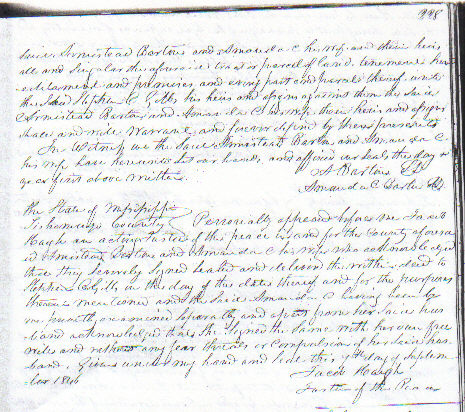 998
said Armistead Barton and Amanda C his wife and their heirs
all and singular the aforesaid tract or parcel of land tenements her
editament and premises and every part and parcels thereof unto
the said Stephen C Gilbs his heirs and assigns against them the said
Armistead Barton and Amanda C his wife their heirs and assigns
shall and will Warrant and forever defend by these presents
In Witness we the said Armistead Barton and Amanda C
his wife have hereunto set our hands, and affixed our seals this day &
year first above written.
A Barton
Amanda C Barton
The State of Mississippi
Tishomingo County Personally appeared before me Jacob
Haugh an acting Justice of the peace in and for the County aforesa
id Armistead Barton and Amanda C his wife who acknowledged
that they severally signed sealed and delivered the within deed to
Stephen C Gilbs on the day of the date thereof and for the purposes
therein mentioned and the said Amanda C having been by
me privately examined separately and apart from her said hus
band acknowledged that she signed the same with her own free
will and without any fear threats or compulsion of her said hus
band, Given under my hand and seal this 4th day of Septem
ber 1846
Jacob Haugh
Justice of the Peace